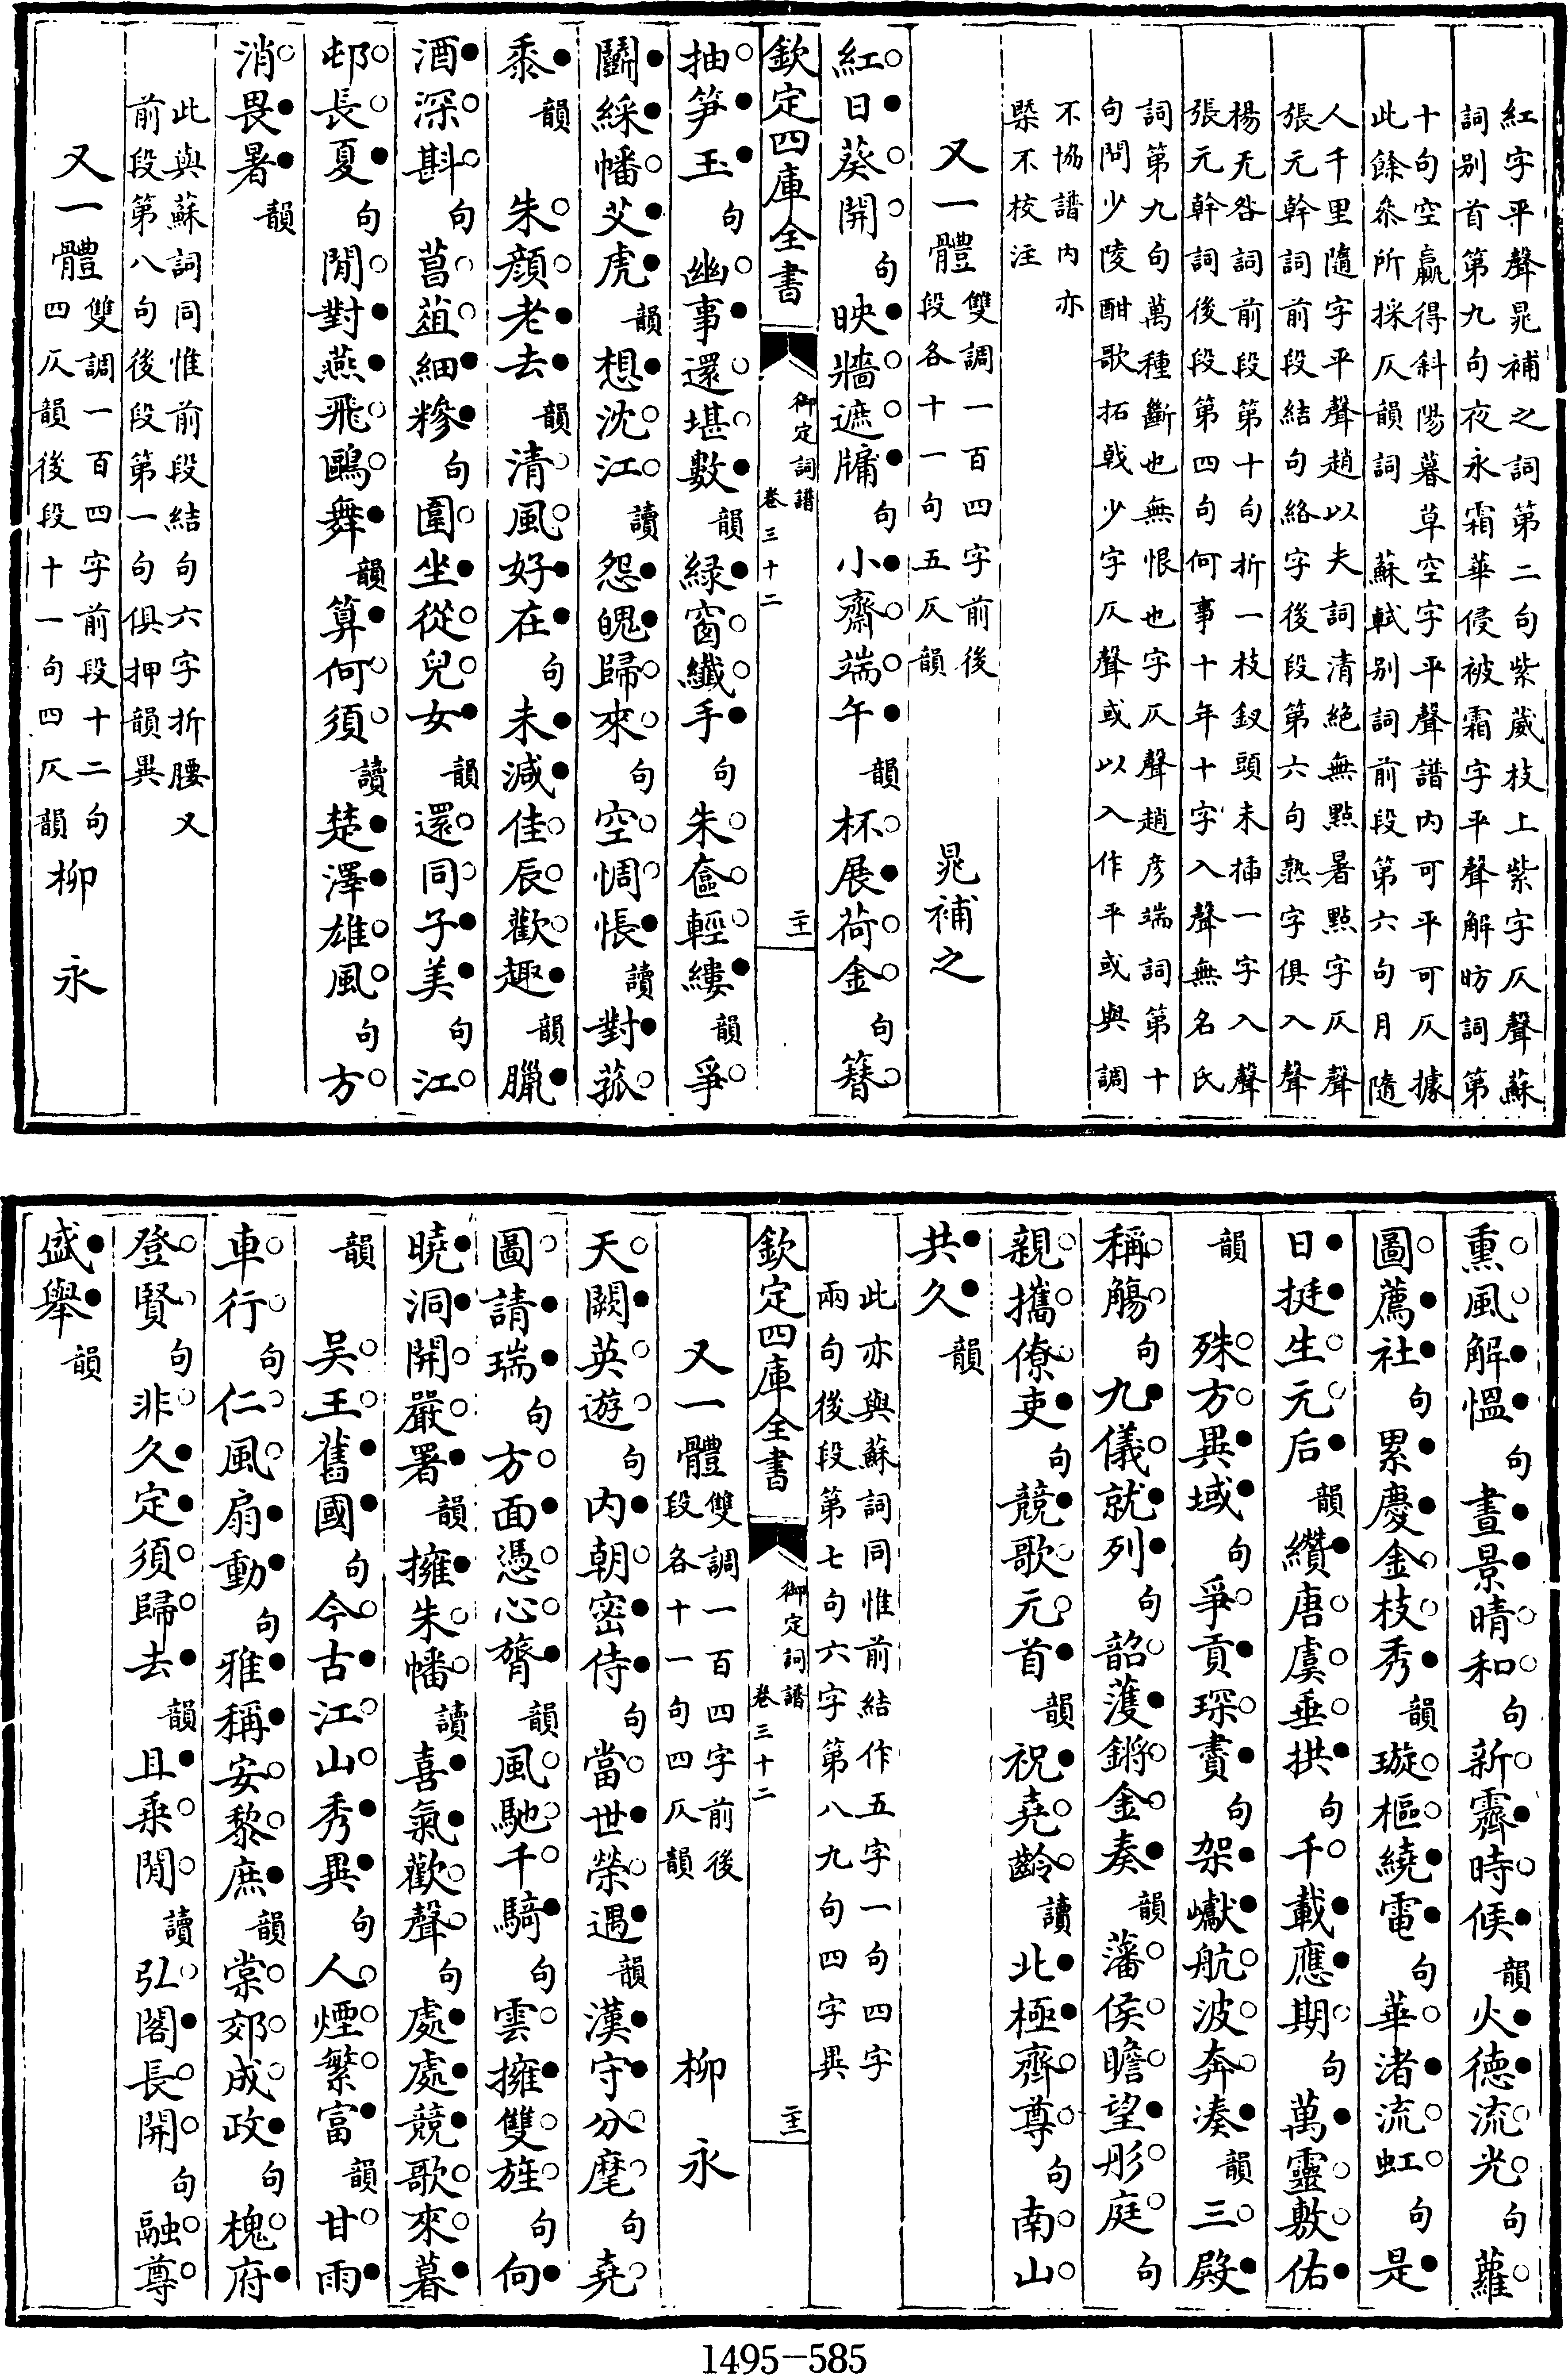 紅字平聲晁補之詞第二句紫葳枝上紫字仄聲蘇
詞别首第九句夜永霜華侵被霜字平聲解昉詞第
十句空贏得斜陽暮草空字平聲譜内可平可仄據
此餘叅所採仄韻詞　蘇軾别詞前段第六句月隨
人千里隨字平聲趙以夫詞清絶無點暑點字仄聲
張元幹詞前段結句絡字後段第六句熟字俱入聲
楊无咎詞前段第十句折一枝釵頭未插一字入聲
張元幹詞後段第四句何事十年十字入聲無名氏
詞第九句萬種斷也無恨也字仄聲趙彦端詞第十
句問少陵酣歌拓㦸少字仄聲或以入作平或與調
不協譜内亦
槩不校注
又一體雙調一百四字前後
段各十一句五仄韻　晁補之
紅日葵開句映牆遮牖句小齋端午韻杯展荷金句簪
欽定四庫全書　御定詞譜　卷三十二　二十一
抽笋玉句幽事還堪數韻緑窗纖手句朱奩輕縷韻爭
鬭綵幡艾虎韻想沈江讀怨魄歸來句空惆悵讀對菰
黍韻　朱顔老去韻清風好在句未減佳辰歡趣韻臘
酒深斟句菖葅細糝句圍坐從兒女韻還同子美句江
邨長夏句閒對燕飛鷗舞韻算何須讀楚澤雄風句方
消畏暑韻
此與蘇詞同惟前段結句六字折腰又
前段第八句後段第一句俱押韻異
又一體雙調一百四字前段十二句
四仄韻後段十一句四仄韻柳　永
熏風解慍句晝景晴和句新霽時候韻火德流光句蘿
圖薦社句累慶金枝秀韻璇樞繞電句華渚流虹句是
日挺生元后韻纘唐虞垂拱句千載應期句萬靈敷佑
韻　殊方異域句爭貢琛賮句架巘航波奔凑韻三殿
稱觴句九儀就列句韶頀鏘金奏韻藩侯瞻望彤庭句
親攜僚吏句競歌元首韻祝堯齡讀北極齊尊句南山
共久韻
此亦與蘇詞同惟前結作五字一句四字
兩句後段第七句六字第八九句四字異
欽定四庫全書　御定詞譜　卷三十二　二十二
又一體雙調一百四字前後
段各十一句四仄韻　柳　永
天闕英遊句内朝密侍句當世榮遇韻漢守分麾句堯
圖請瑞句方面憑心膂韻風馳千騎句雲擁雙旌句向
曉洞開嚴署韻擁朱幡讀喜氣歡聲句處處競歌來暮
韻　吴王舊國句今古江山秀異句人煙繁富韻甘雨
車行句仁風扇動句雅稱安黎庶韻棠郊成政句槐府
登賢句非久定須歸去韻且乘閒讀弘閣長開句融尊
盛舉韻
1495-585